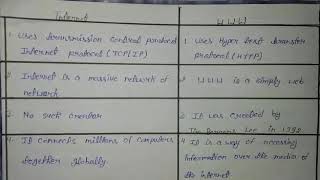 Internet
WWW
1. Uses transmission control protocol
Internet protocol (TCP/IP)
1. Uses Hyper text transfer
protocol (HTTP)
2. Internet is a massive network of
network
2. WWW is a simply web
3. No such creator
3. It was created by
Tim Berners Lee in
4. It connects millions of computers
together globally.
4. It is a way of accessing
information over the media of
the internet